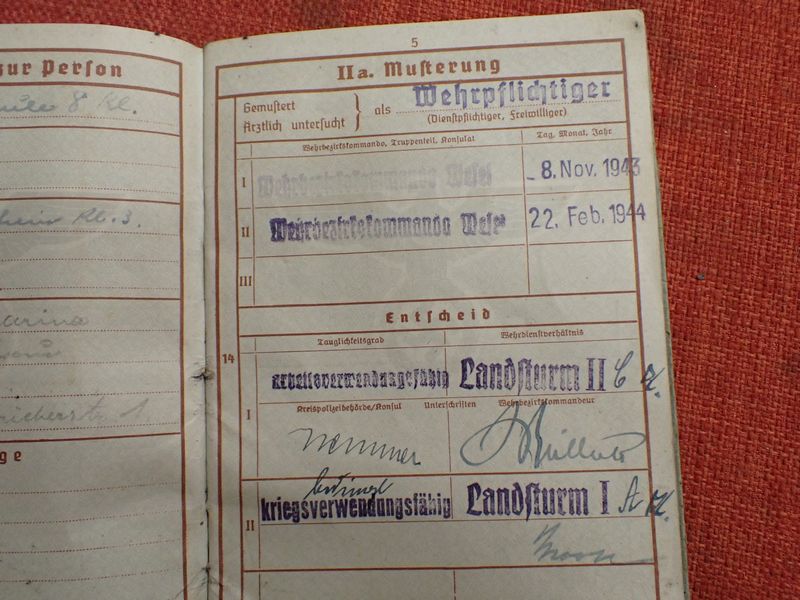 zur Person
8 Kl.
Kl. 3.
ge
5
IIa. Musterung
Gemustert
Ärztlich untersucht } als Wehrpflichtiger
(Dienstpflichtiger, Freiwilliger)
Wehrbezirkskommando, Truppenteil, Konsulat Tag, Monat, Jahr
I Wehrbezirkskommando Wesel -8. Nov. 1943
II Wehrbezirkskommando Wesel 22. Feb. 1944
III
Entscheid
Tauglichkeitsgrad Wehrdienstverhältnis
14
arbeitsverwendungsfähig Landsturm II
I Kreispolizeibehörde/Konsul Unterschriften Wehrbezirkskommandeur
bedingt
II kriegsverwendungsfähig Landsturm I A